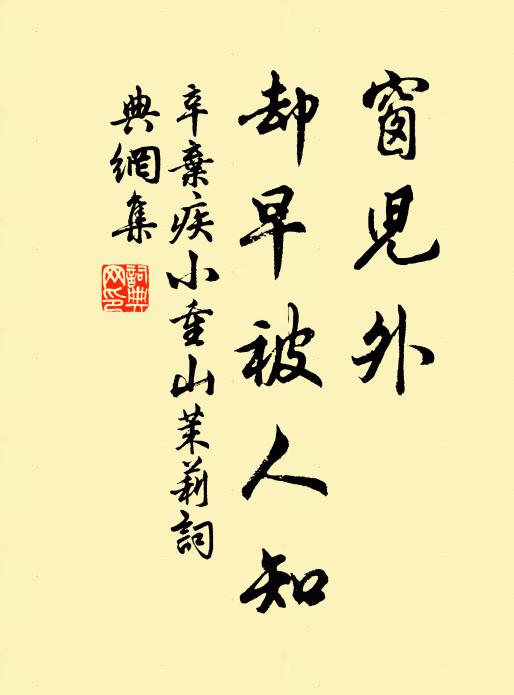 窗兒外
却早被人知
辛棄疾小重山茉莉詞
典網集
詞典网印